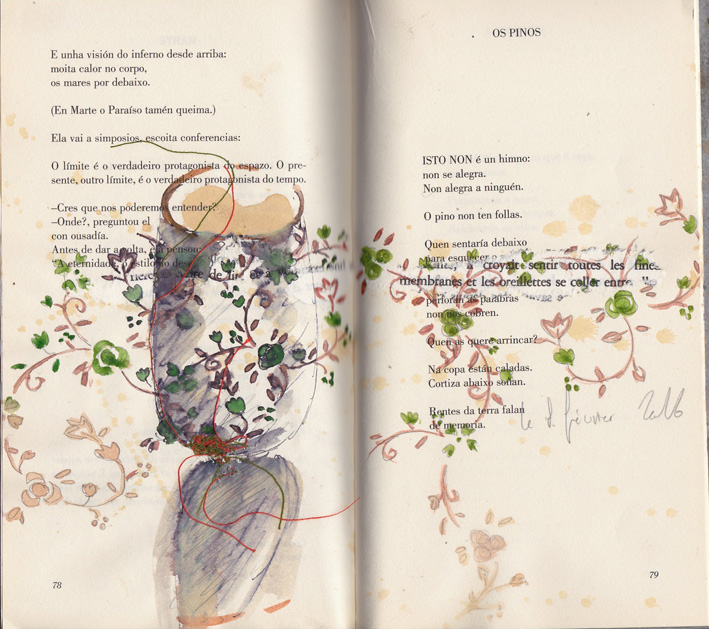 E unha visión do inferno desde arriba:
moita calor no corpo,
os mares por debaixo.
(En Marte o Paraíso tamén queima.)
Ela vai a simposios, escoita conferencias:
O límite é o verdadeiro protagonista do espazo. O pre-
sente, outro límite, é o verdadeiro protagonista do tempo.
–Cres que nos poderemos entender?
–Onde?, preguntou el
con ousadía.
Antes de dar a volta, ela pensou:
78
OS PINOS
ISTO NON é un himno:
non se alegra.
Non alegra a ninguén.
O pino non ten follas.
Quen sentaría debaixo
para esquecer
croyait sentir toutes les fine
membranes et les oreillettes se coller entre
perforan as palabras
non nos cobren.
Quen as quere arrincar?
Na copa están caladas.
Cortiza abaixo soñan.
Rentes da terra falan
de memoria.
le 8 février 2016
79